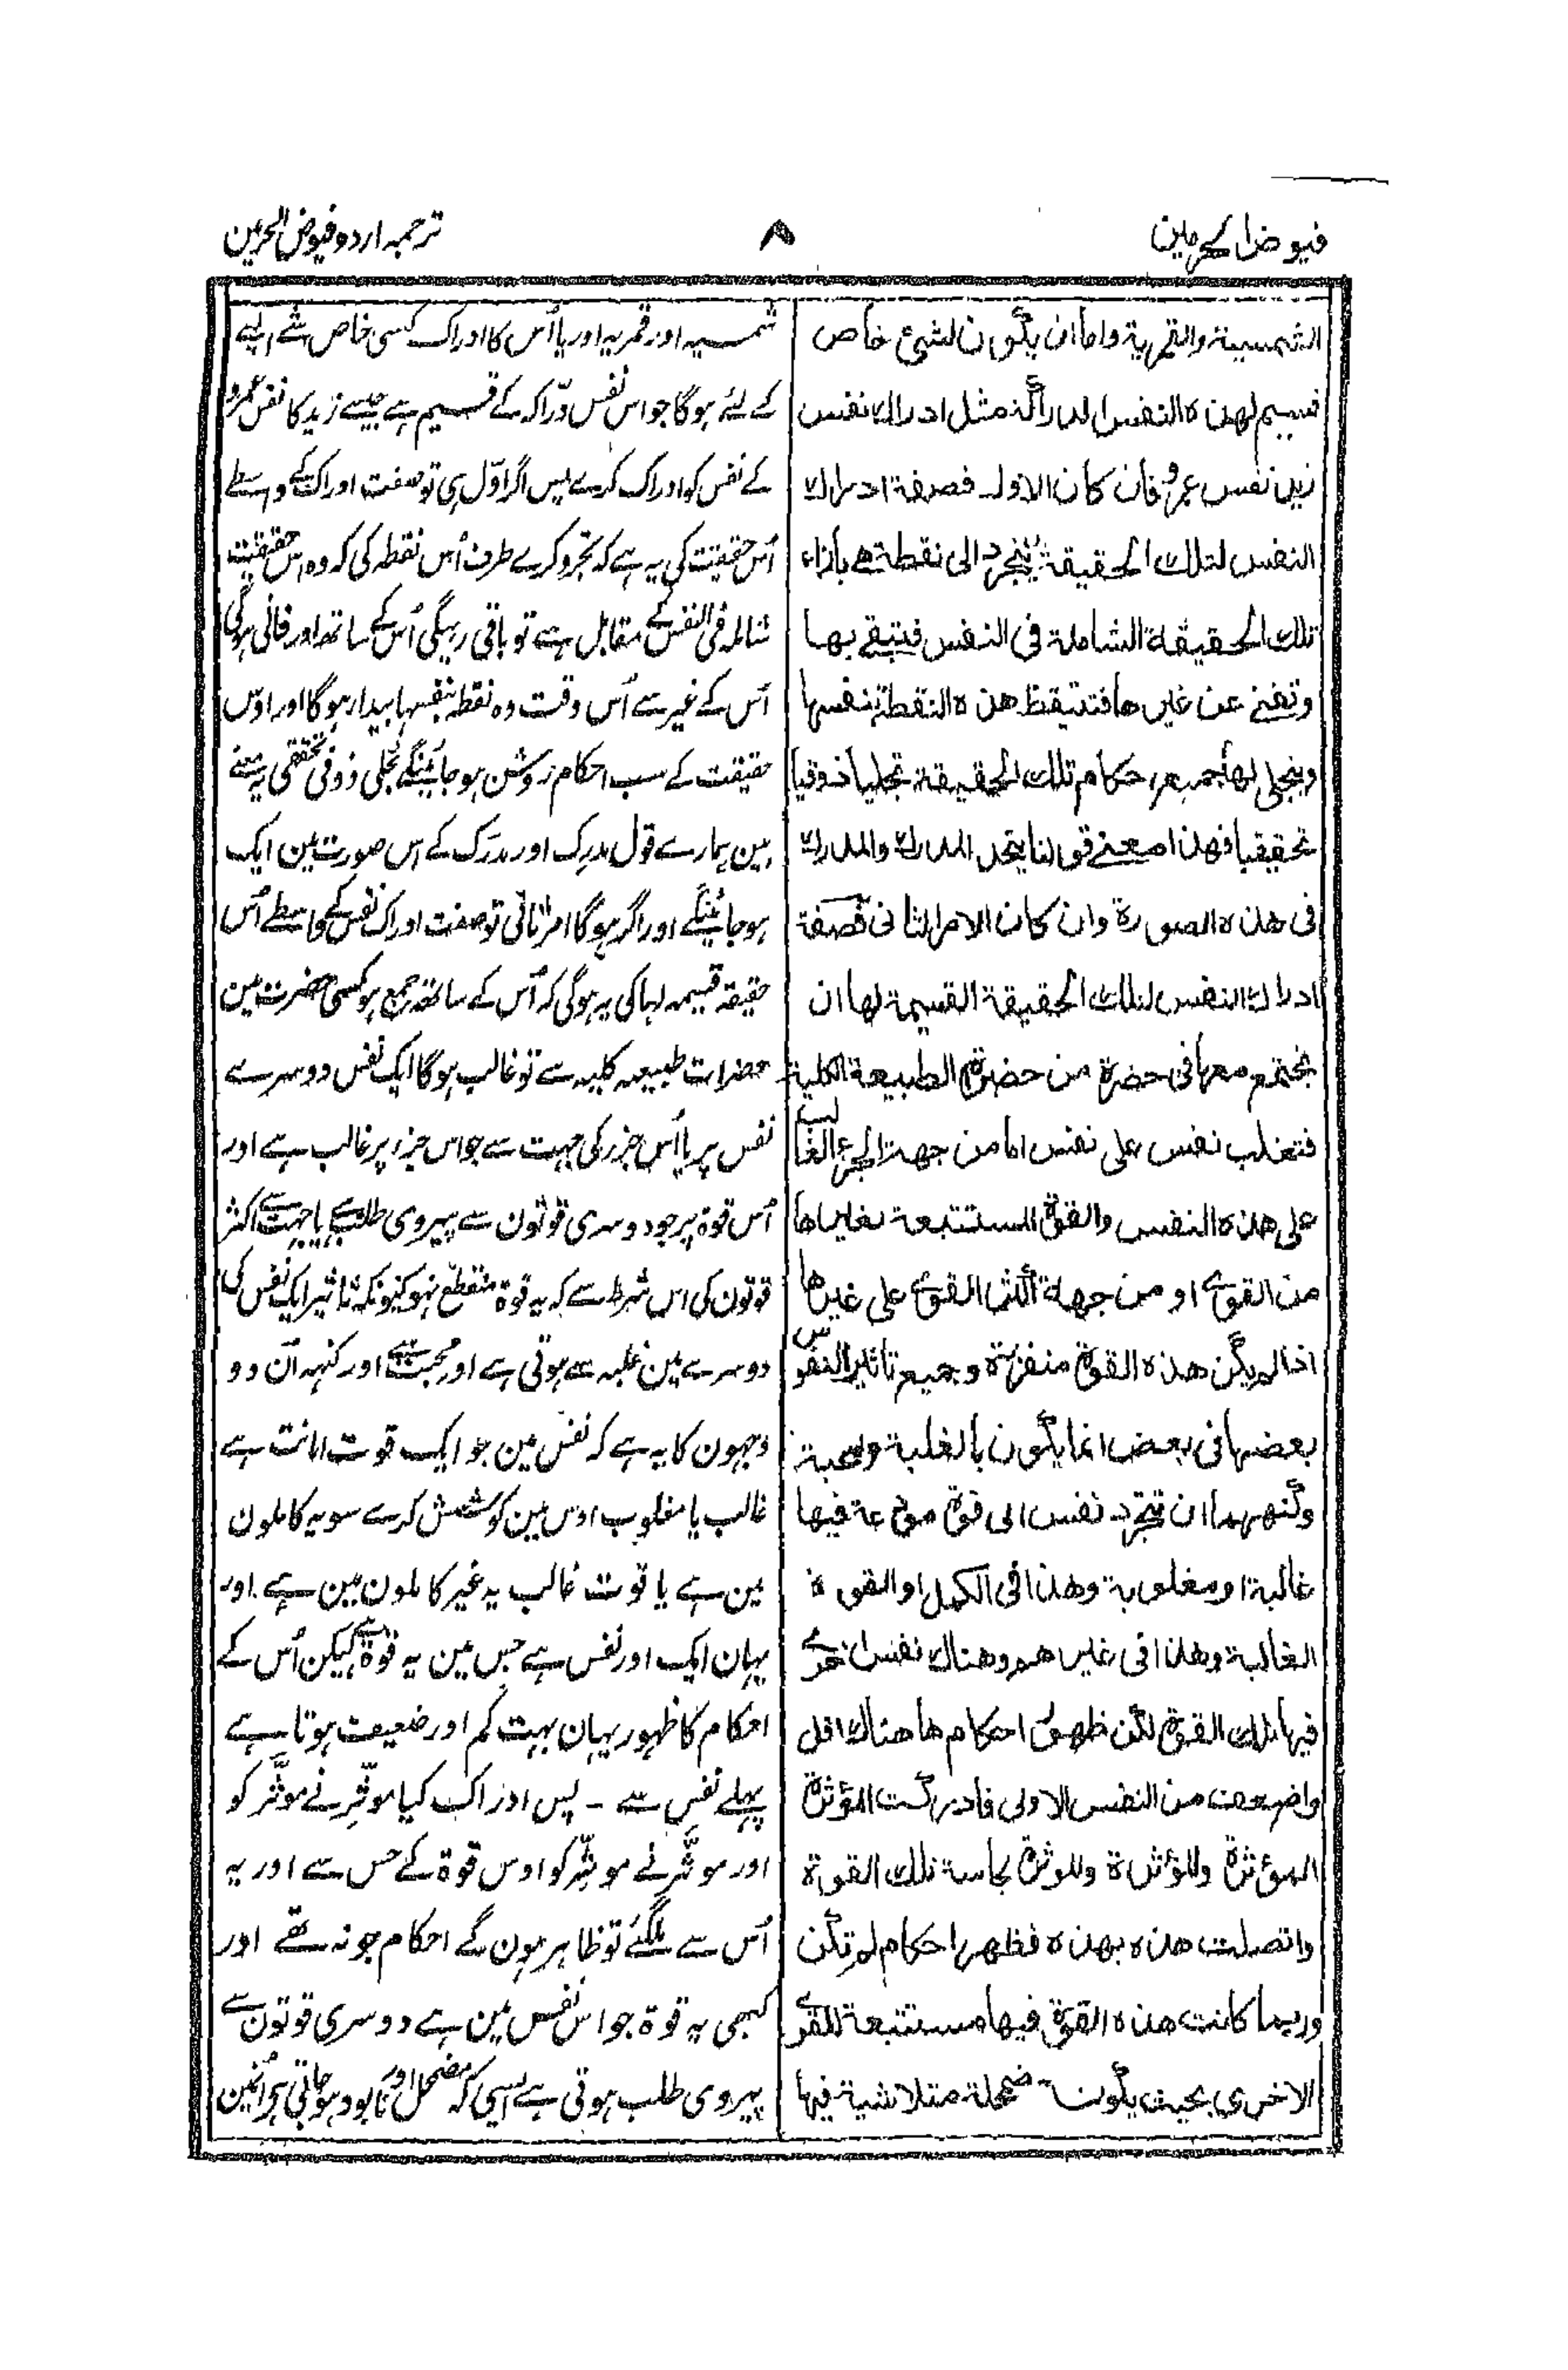 فیوض الحرمین
۸
ترجمہ اردو فیوض الحرمین
الشمسیة والقمریة واما ان یکون لشیٔ خاص
قسیم لهذه النفس الدراکة مثل ادراك نفس
زید نفس عمرو فان کان الاول فصفة ادراك
النفس لتلك الحقیقة تتجرد الی نقطة هی بازاء
تلك الحقیقة الشاملة فی النفس فتبقے بها
وتفنے عن غیرها فتتیقظ هذه النقطة بنفسها
وینجلی لها جمیع احکام تلك الحقیقة تجلیا ذوقیا
تحقیقیا فهذا معنے قولنا یتحد المدرك والمدرك
فی هذه الصورة وان کان الامر الثانی فصفة
ادراك النفس لتلك الحقیقة القسیمة لها ان
تجتمع معها فی حضرة من حضرة الطبیعة الکلیة
فتغلب نفس علی نفس اما من جهة الجزء الغالب
علی هذه النفس والقوة المستتبعة لغیرها
من القوے او من جهة اکثر القوے علی غیرها
اذا لم یکن هذه القوة منفرزة وجمیع تاثیر النفوس
بعضها فی بعض انما یکون بالغلبة والمحبة
وکنههما ان تتجرد نفس الی قوة مودعة فیها
غالبة او مغلوبة وهذا فی الکمل او القوة
الغالبة وهذا فی غیرهم وهناك نفس اخرے
فیها تلك القوة لکن ظهور احکامها هناك اقل
واضعف من النفس الاولی فادرکت المؤثرة
المؤثرة والمؤثرة للموثرة بحاسة تلك القوة
واتصلت هذه بهذه فظهر احکام لم تکن
وربما کانت هذه القوة فیها مستتبعة للقوے
الاخری بحیث یکون مضمحلة متلاشیة فیها
شمسیہ اور قمریہ اور یا اُس کا ادراک کسی خاص شے ایسے
کے لئے ہوگا جو اس نفس درّاکہ کے قسیم ہے جیسے زید کا نفس عمرو
کے نفس کو ادراک کرے پس اگر اوّل ہی تو صفت ادراک کے واسطے
اُس حقیقت کی یہ ہے کہ تجرد کرے طرف اُس نقطہ کی کہ وہ اس حقیقت
شاملہ فی النفس کے مقابل ہے تو باقی رہیگی اُس کے ساتھ اور فانی ہوگی
اُس کے غیر سے اُس وقت وہ نقطہ بنفسہا بیدار ہوگا اور اوس
حقیقت کے سب احکام روشن ہو جائینگے تجلی ذوقی تحقیقی یہ معنے
ہین ہمارے قول مدرِک اور مدرَک کے اس صورت مین ایک
ہوجائینگے اور اگر ہوگا امر ثانی تو صفت ادراک نفس کے واسطے اُس
حقیقة قسیمہ لہا کی یہ ہوگی کہ اُس کے ساتھ جمع ہو کسی حضرت مین
حضرات طبیعہ کلیہ سے تو غالب ہوگا ایک نفس دوسرے
نفس پر یا اُس جزر کی جہت سے جو اس جزر پر غالب ہے اور
اُس قوة پر جو دوسری قوتون سے پیروی طلب ہے یا جہت سے اکثر
قوتون کی اس شرط سے کہ یہ قوة منقطع نہو کیونکہ تاثیر ایک نفس کی
دوسرے مین غلبہ سے ہوتی ہے اور محبت سے اور کنہہ اُن دو
وجہون کا یہ ہے کہ نفس مین جو ایک قوت امانت ہے
غالب یا مغلوب اوس مین کوشش کرے سو یہ کاملون
مین ہے یا قوت غالب یہ غیر کاملون مین ہے اور
یہان ایک اور نفس ہے جس مین یہ قوة ہے لیکن اُس کے
احکام کا ظہور یہان بہت کم اور ضعیف ہوتا ہے
پہلے نفس سے ۔ پس ادراک کیا موثِّر نے موثَّر کو
اور موثَّر نے موثِّر کو اوس قوة کے حس سے اور یہ
اُس سے ملگئے تو ظاہر ہون گے احکام جو نہ تھے اور
کبھی یہ قوة جو اس نفس مین ہے دوسری قوتون سے
پیروی طلب ہوتی ہے ایسی کہ مضمحل اور نابود ہوجاتی ہے اُنمین